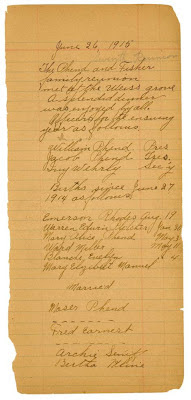 June 26, 1915
The Phend and Fisher
family reunion
met at the Weiss grove
A splendid dinner
was enjoyed by all.
Officers for the ensuing
year as follows
William Phend Pres
Jacob Phend
Guy Wehrly Sec'y
Births since June 27
1914 as follows
Emerson Rhodes Aug. 19
Warren Jan 30
Mary Phend May
Ward May
Blanche Evelyn 4
Mary Elizabeth
Married
Phend
Fred Earnest
Archie
Bertha Kline